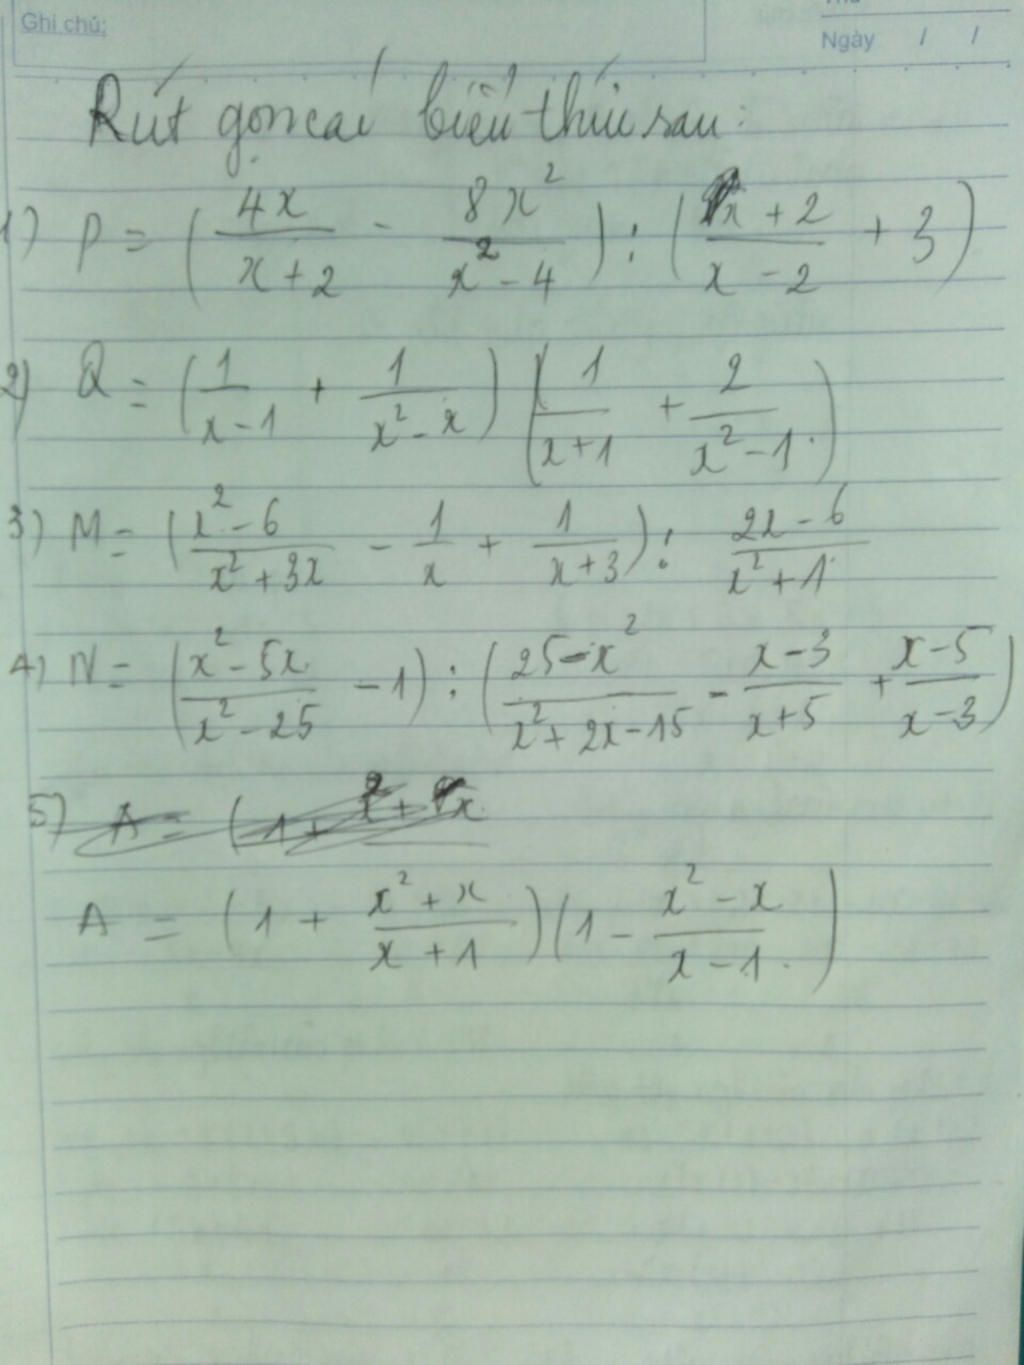 Ghi chú:
Thứ
Ngày / /
Rút gọn các biểu thức sau:
1) P = (4x/(x+2) - 8x²/(x²-4)) : ((x+2)/(x-2) + 3)
2) Q = (1/(x-1) + 1/(x²-x)) (1/(x+1) + 2/(x²-1))
3) M = ((x²-6)/(x²+3x) - 1/x + 1/(x+3)) : (2x-6)/(x²+1)
4) N = ((x²-5x)/(x²-25) - 1) : ((25-x²)/(x²+2x-15) - (x-3)/(x+5) + (x-5)/(x-3))
5)
A = (1 + (x²+x)/(x+1)) (1 - (x²-x)/(x-1))